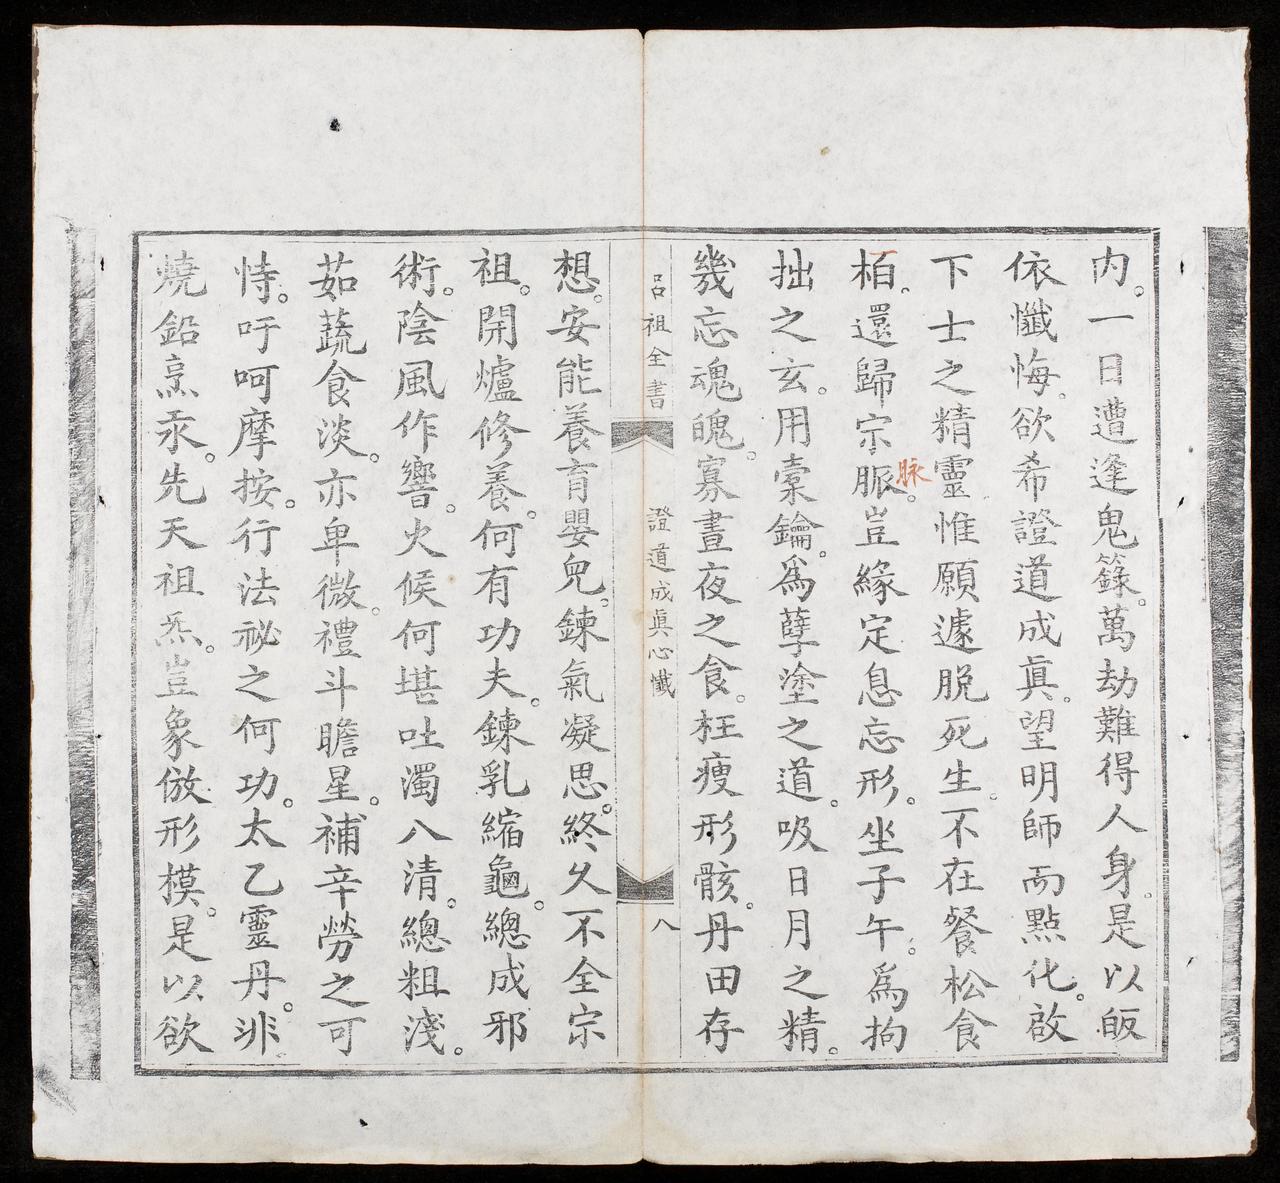 内。一日遭逢鬼籙。萬劫難得人身。是以皈
依懺悔。欲希證道成眞。望明師而點化。啟
下士之精靈惟願遽脫死生。不在餐松食
栢。還歸宗脈。豈緣定息忘形。坐子午。爲拘
脉
拙之玄。用橐鑰。爲孽塗之道。吸日月之精。
幾忘魂魄。寡晝夜之食。枉瘦形骸。丹田存
呂祖全書
證道成眞心懺
八
想。安能養育嬰兒。鍊氣凝思。終久不全宗
祖。開爐修養。何有功夫。鍊乳縮龜。總成邪
術。陰風作響。火候何堪吐濁八清。總粗淺。
茹蔬食淡。亦卑微。禮斗瞻星。補辛勞之可
恃。吁呵摩按。行法祕之何功。太乙靈丹。非
燒鉛烹汞。先天祖炁。豈象倣形模。是以欲